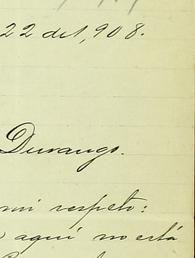 22 del 1,908.
Durango.
mi respeto:
aquí no está